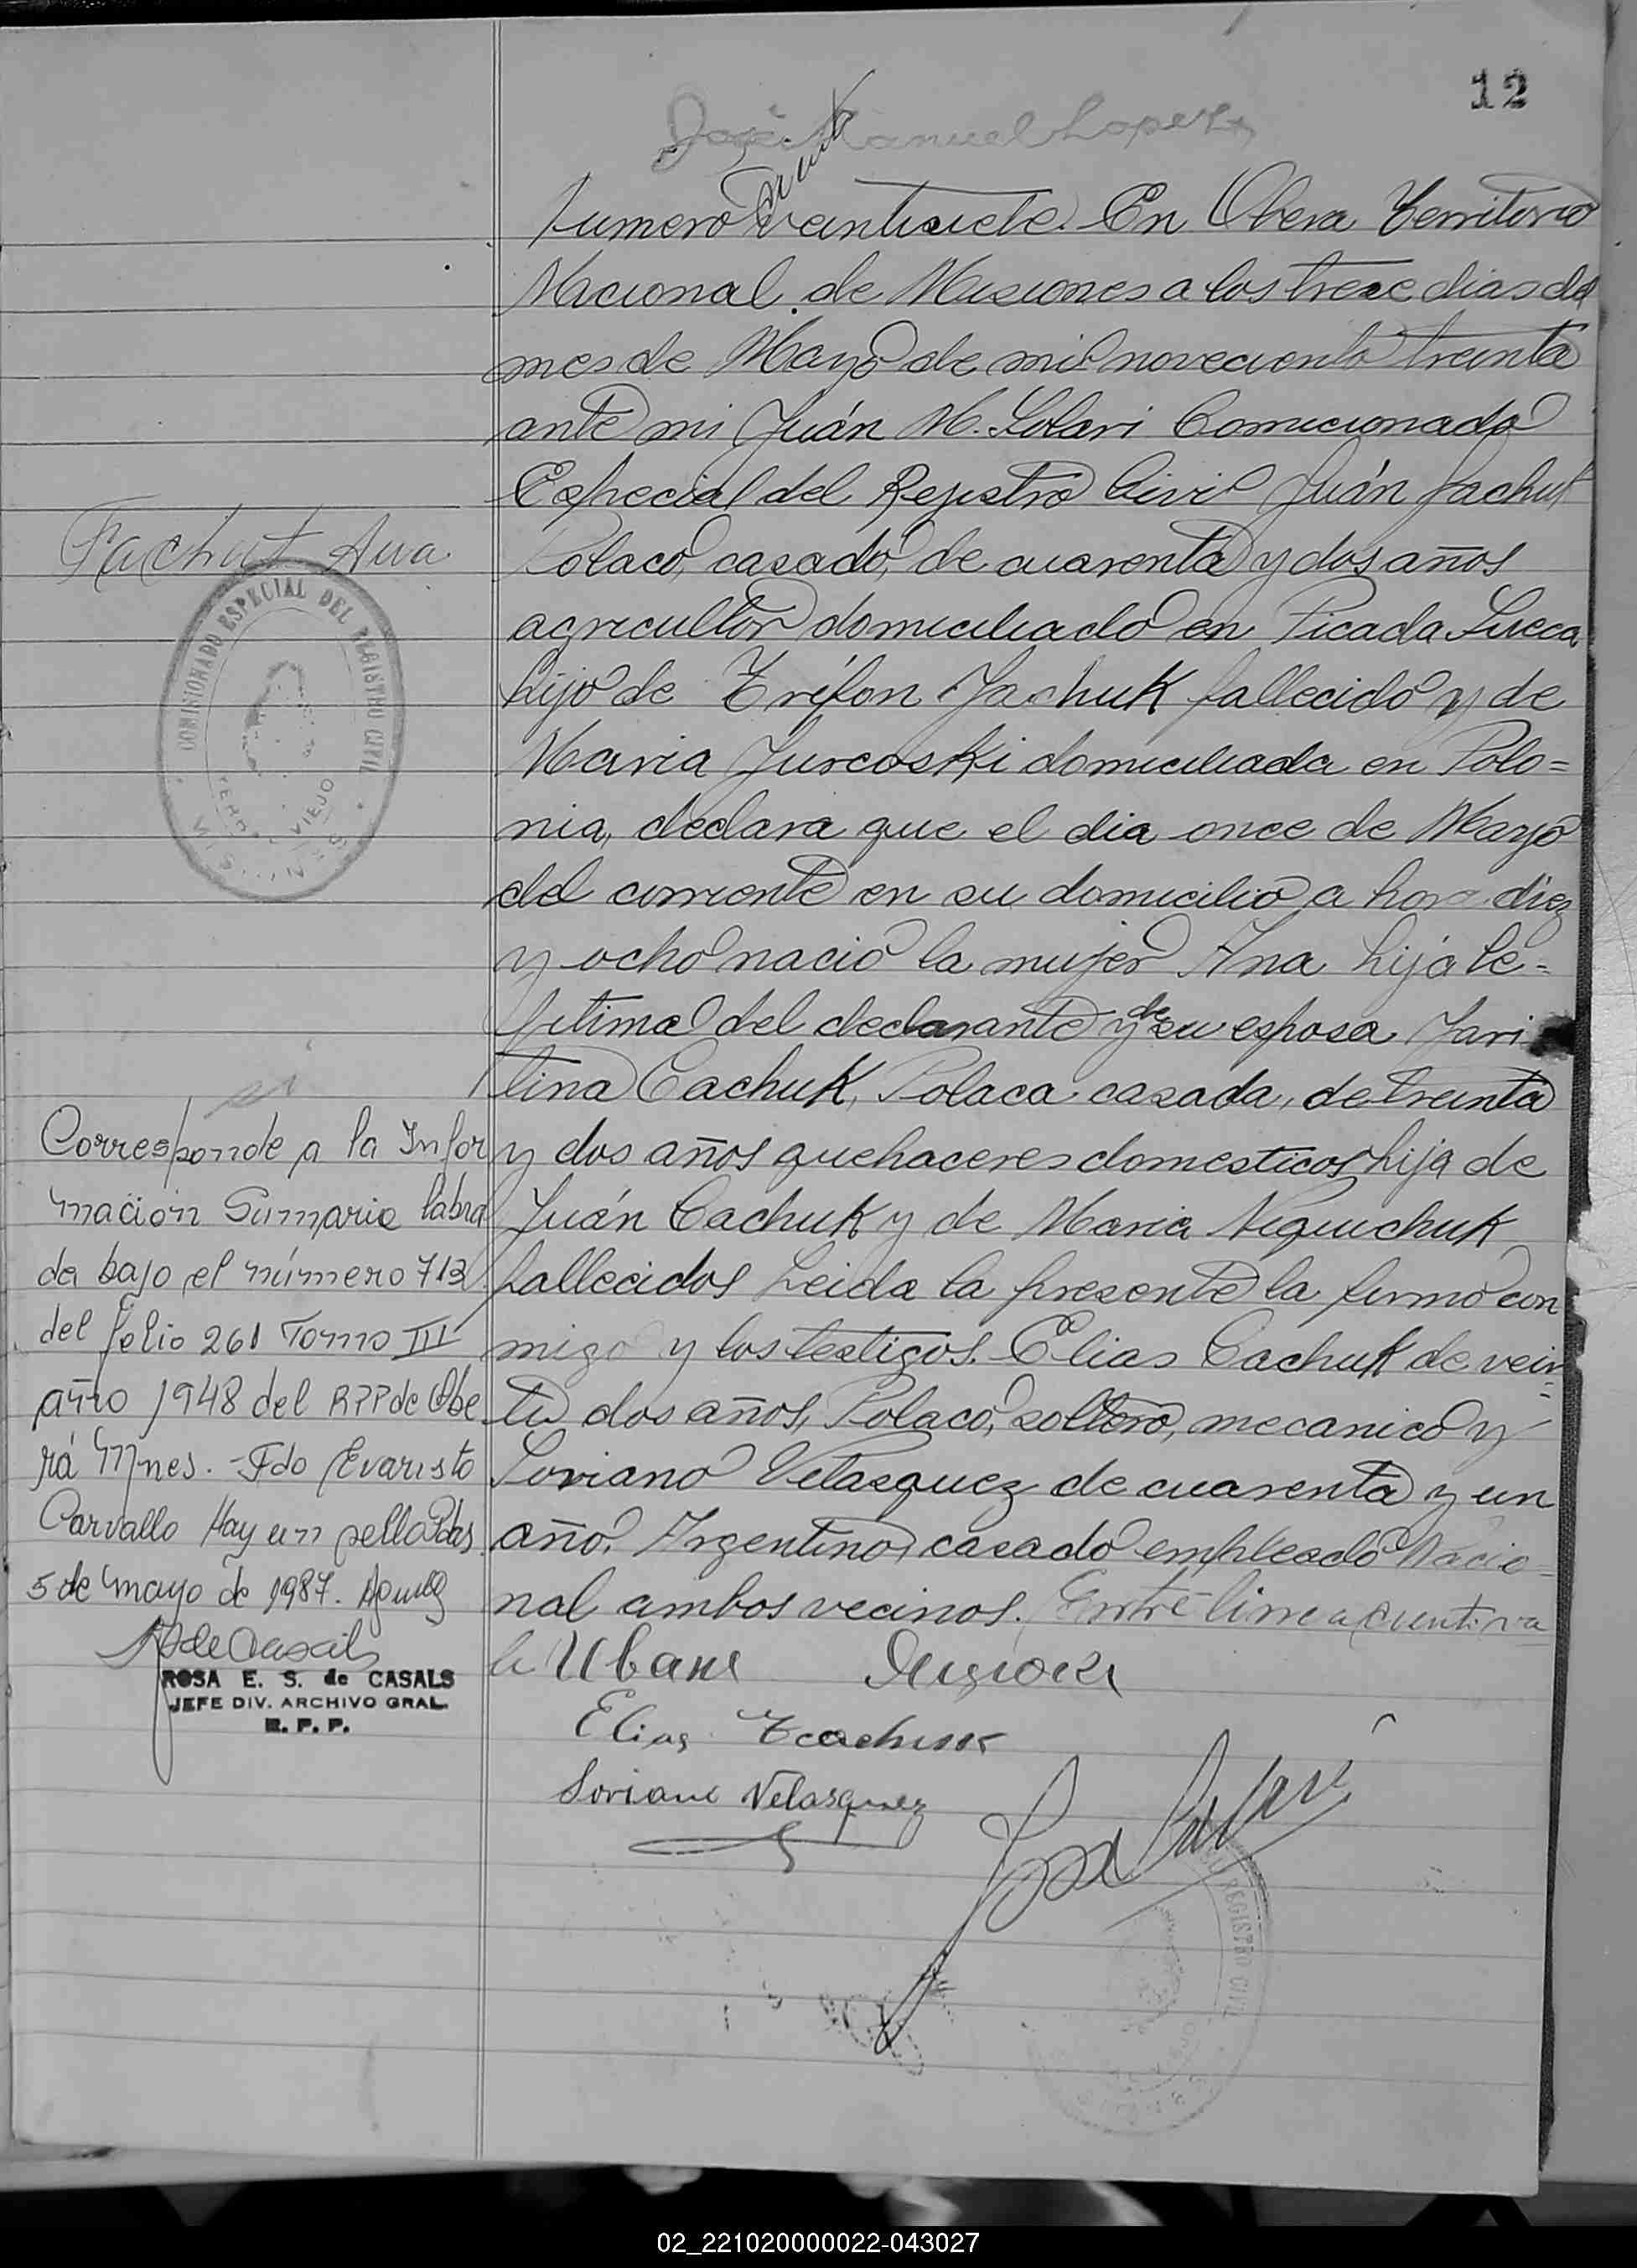 12
José Manuel Lopez
Numero veintisiete. En Obera Territorio
Nacional de Misiones a los trece dias del
mes de Mayo de mil noveciento treinta
ante mi Juán M. Solari Comicionado
Especial del Rejistro Civil Juán Jachuk
Polaco, casado, de cuarenta y dos años
agricultor domiciliado en Picada Sueca
hijo de Trífon Jachuk fallecido y de
Maria Jurcoski domiciliada en Polo=
nia, declara que el dia once de Mayo
del corriente en su domicilio a hora diez
y ocho nacio la mujer Ana hija le=
jitima del declarante y de su esposa Jari
tina Cachuk, Polaca casada, de treinta
y dos años quehaceres domesticos hija de
Juán Cachuk y de Maria Niquichuk
fallecidos Leida la presente la firmo con
migo y los testigos. Elias Cachuk de vein
=
ti dos años, Polaco, soltero, mecanico y
Soriano Velasquez de cuarenta y un
año. Argentino, casado empleado Nacio=
nal ambos vecinos. Entre linea
le
Elias Tcachuk
Soriano Velasquez
Fachut Ana
COMISIONADO ESPECIAL DEL REGISTRO CIVIL
CERRO VIEJO
MISIONES
Corresponde a la Infor
mación Sumaria labra
da bajo el número 713
del folio 261 Tomo III
año 1948 del RPP de Obe
rá Mnes. - Fdo Evaristo
Carvallo Hay un sello Pdas
5 de mayo de 1987.
ROSA E. S. de CASALS
JEFE DIV. ARCHIVO GRAL.
R. P. P.
REGISTRO CIVIL
02_221020000022-043027